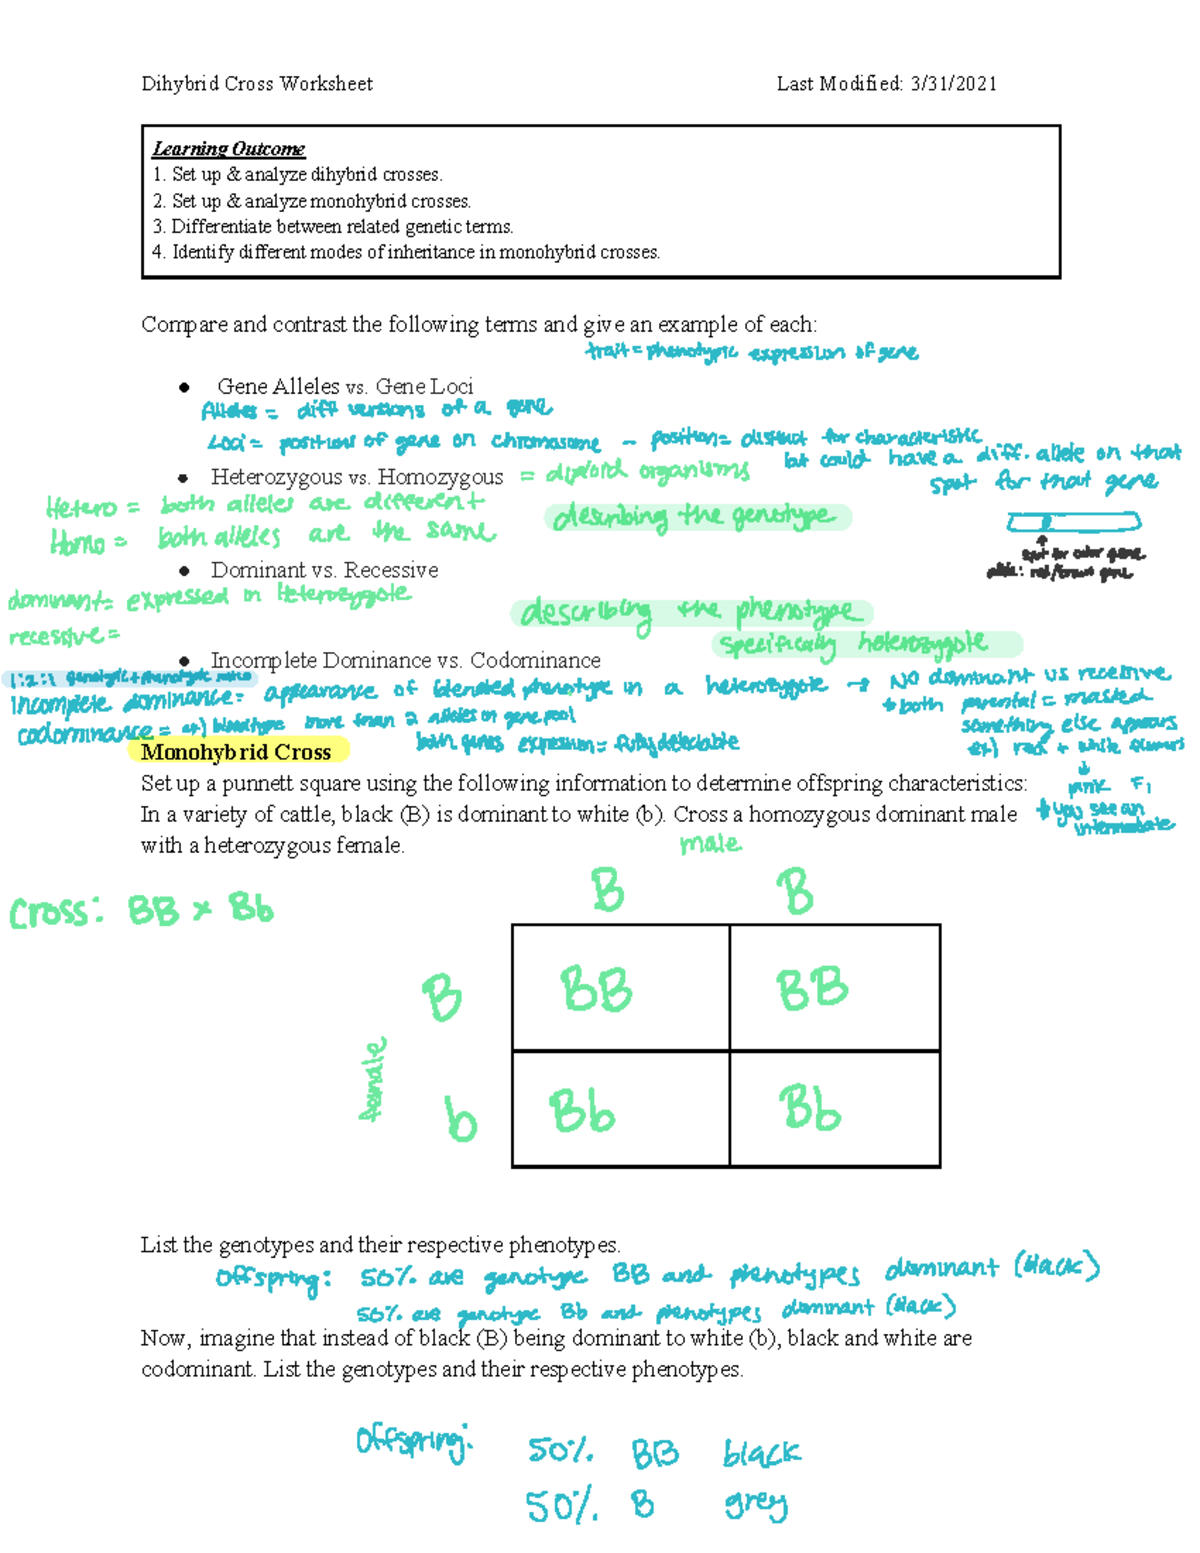 Dihybrid Cross Worksheet Last Modified: 3/31/2021
Learning Outcome
1. Set up & analyze dihybrid crosses.
2. Set up & analyze monohybrid crosses.
3. Differentiate between related genetic terms.
4. Identify different modes of inheritance in monohybrid crosses.
Compare and contrast the following terms and give an example of each:
trait = phenotypic expression of gene
● Gene Alleles vs. Gene Loci
Alleles = diff versions of a gene
Loci = position of gene on chromosome – position = distinct for characteristic
but could have a diff. allele on that
spot for that gene
● Heterozygous vs. Homozygous = diploid organisms
Hetero = both alleles are different
describing the genotype
Homo = both alleles are the same
spot for color gene
allele: red/brown gene
● Dominant vs. Recessive
dominant = expressed in Heterozygote
describing the phenotype
recessive =
specifically heterozygote
● Incomplete Dominance vs. Codominance
1:2:1 genotypic + phenotypic ratio
incomplete dominance = appearance of blended phenotype in a heterozygote → No dominant vs recessive
* both parental = masked
something else appears
ex) red + white flowers
↓
pink F1
* you see an
intermediate
codominance = ex) bloodtype more than 2 alleles in gene pool
both genes expression = fully detectable
Monohybrid Cross
Set up a punnett square using the following information to determine offspring characteristics:
In a variety of cattle, black (B) is dominant to white (b). Cross a homozygous dominant male
with a heterozygous female.
male
Cross: BB x Bb
B B
B BB BB
female
b Bb Bb
List the genotypes and their respective phenotypes.
Offspring: 50% are genotype BB and phenotypes dominant (black)
50% are genotype Bb and phenotypes dominant (black)
Now, imagine that instead of black (B) being dominant to white (b), black and white are
codominant. List the genotypes and their respective phenotypes.
Offspring: 50% BB black
50% B grey